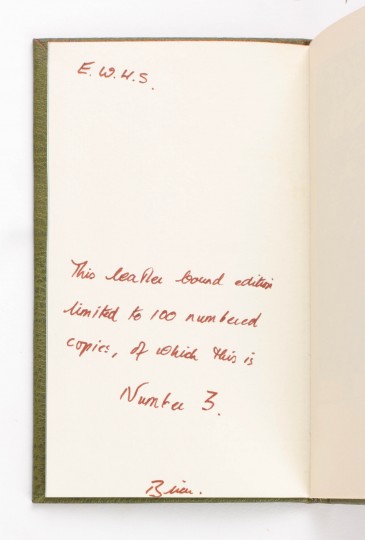 E.W.H.S.
This leather bound edition
limited to 100 numbered
copies, of which this is
Number 3.
Brian.